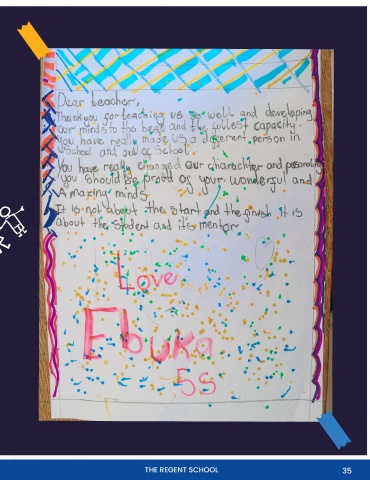 Dear teacher,
Thank you for teaching us so well and developing
our minds to the best and the fullest capacity.
You have really made us a different person in
school and out of school.
You have really changed our charachter and personality
you should be proud of your wonderful and
Amazing minds.
It is not about the start and the finish it is
about the student and its mentor
Love
Ebuka
5S
THE REGENT SCHOOL
35